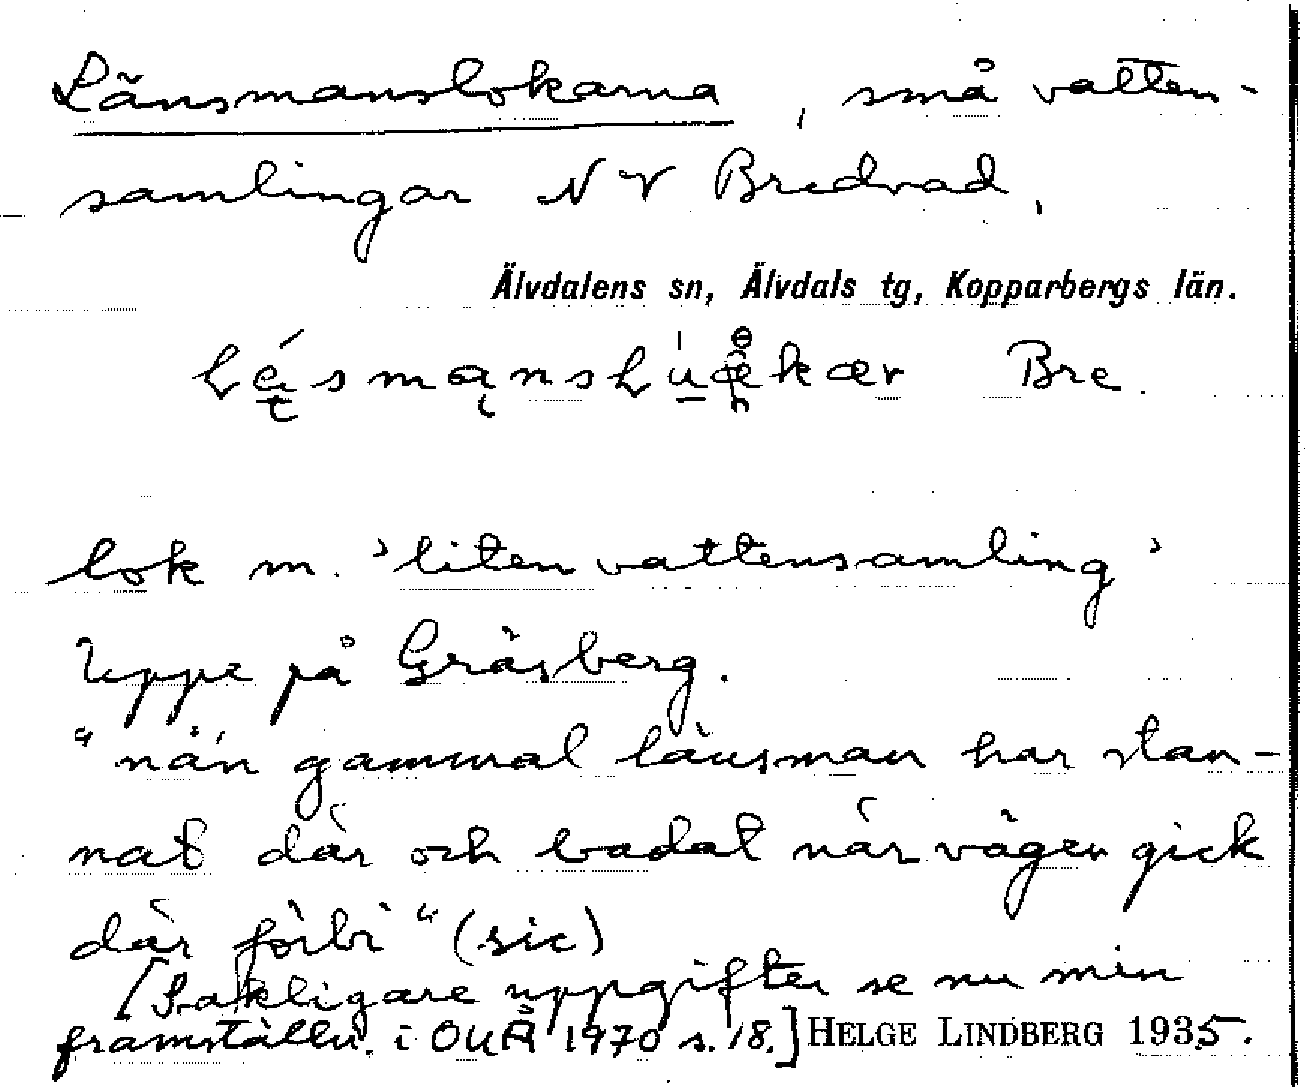 Länsmanslokarna, små vatten-
samlingar NV Bredvad,
Älvdalens sn, Älvdals tg, Kopparbergs län.
Bre.
lok m. 'liten vattensamling'
Uppe på Gräsberg.
"nån gammal länsman har stan-
nat där och badat när vägen gick
där förbi" (sic)
[Sakligare uppgifter se nu min
framställn. i OUÅ 1970 s. 18.] HELGE LINDBERG 1935.